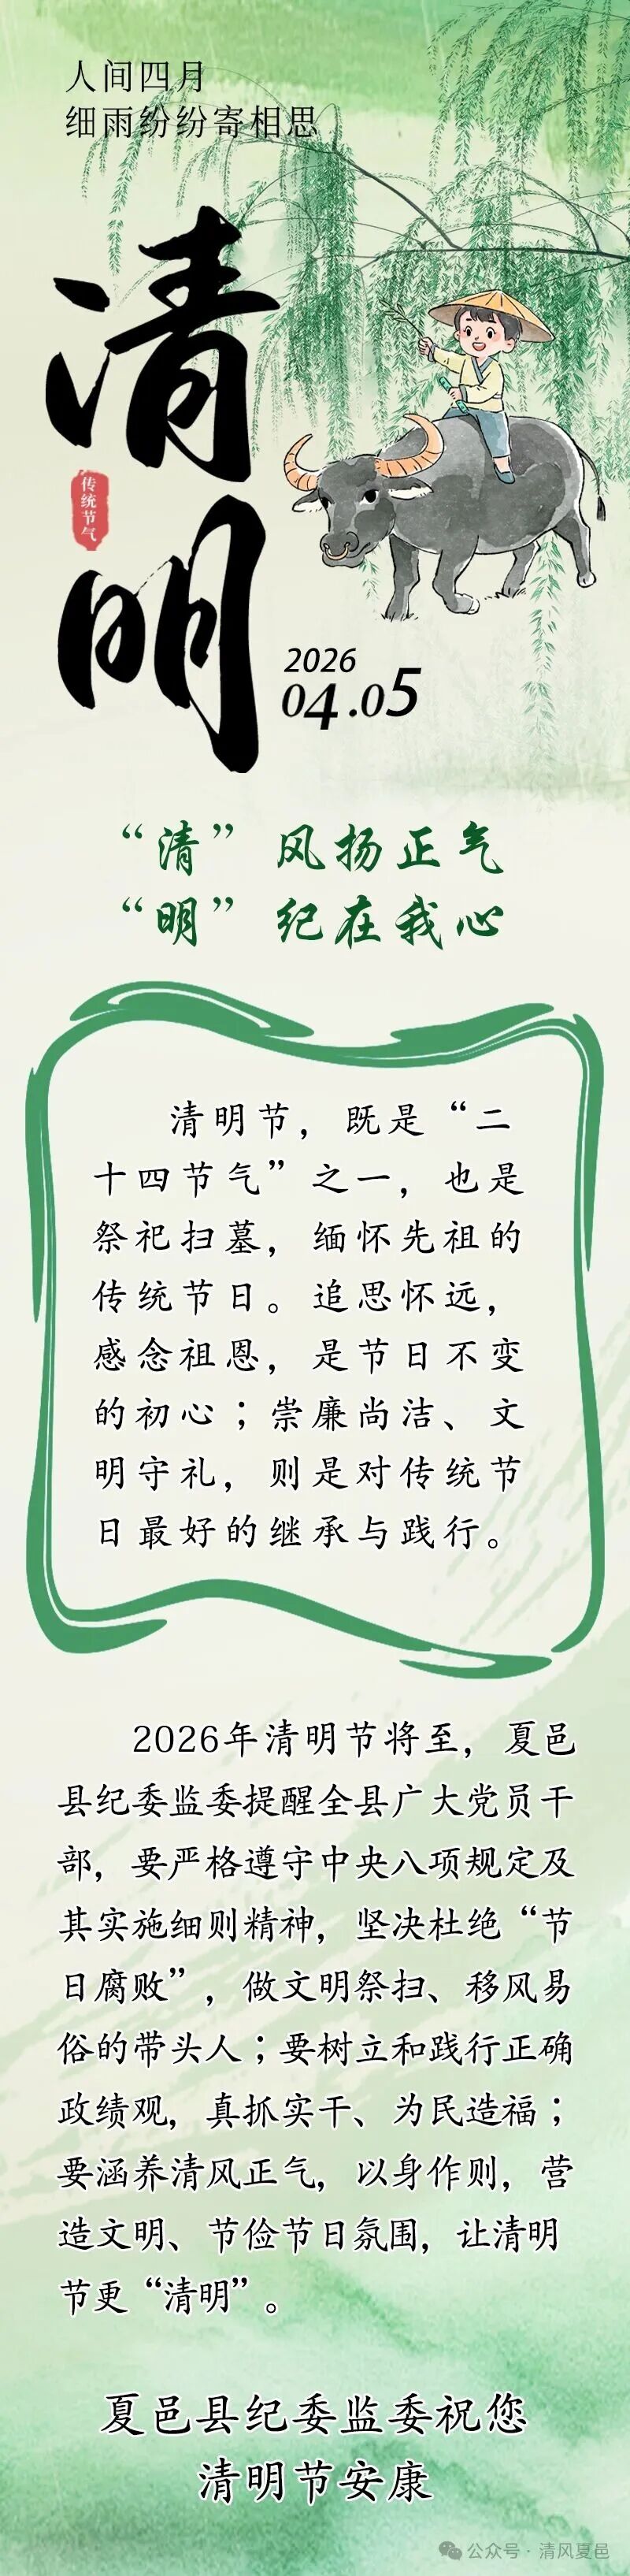 人间四月
细雨纷纷寄相思
清明
传统节气
2026
04.05
“清”风扬正气
“明”纪在我心
清明节，既是“二
十四节气”之一，也是
祭祀扫墓，缅怀先祖的
传统节日。追思怀远，
感念祖恩，是节日不变
的初心；崇廉尚洁、文
明守礼，则是对传统节
日最好的继承与践行。
2026年清明节将至，夏邑
县纪委监委提醒全县广大党员干
部，要严格遵守中央八项规定及
其实施细则精神，坚决杜绝“节
日腐败”，做文明祭扫、移风易
俗的带头人；要树立和践行正确
政绩观，真抓实干、为民造福；
要涵养清风正气，以身作则，营
造文明、节俭节日氛围，让清明
节更“清明”。
夏邑县纪委监委祝您
清明节安康
公众号·清风夏邑